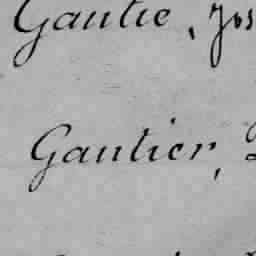 Gautie, Jos
Gautier,